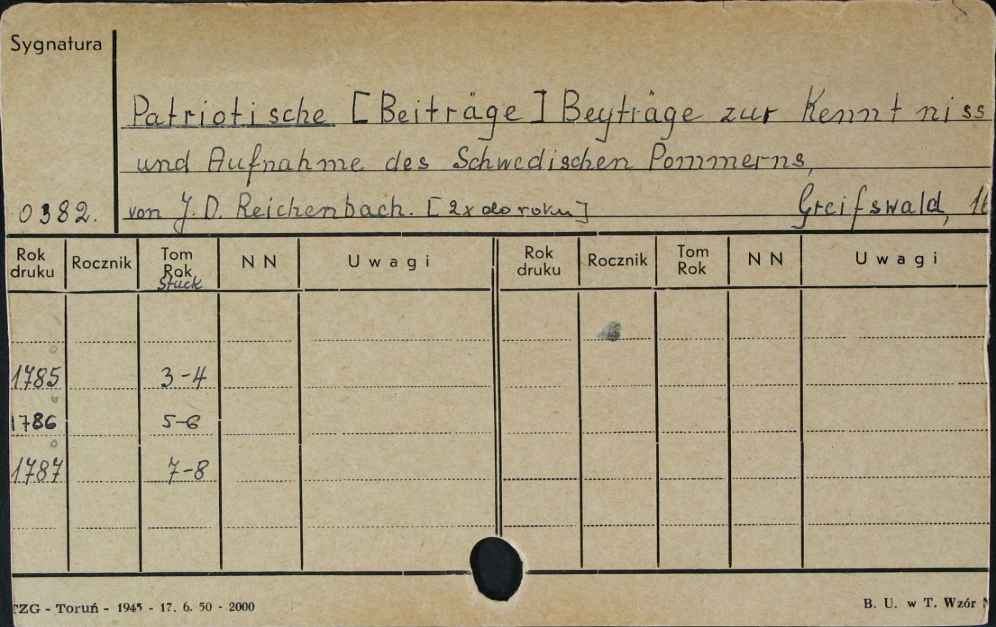 Sygnatura
Patriotische [Beiträge] Beyträge zur Kenntniss
und Aufnahme des Schwedischen Pommerns,
0382. von J. D. Reichenbach. [2x do roku] Greifswald,
Rok druku Rocznik Tom Rok Stück N N Uwagi Rok druku Rocznik Tom Rok N N Uwagi
1785 3-4
1786 5-6
1787 7-8
TZG - Toruń - 1945 - 17. 6. 50 - 2000 B. U. w T. Wzór